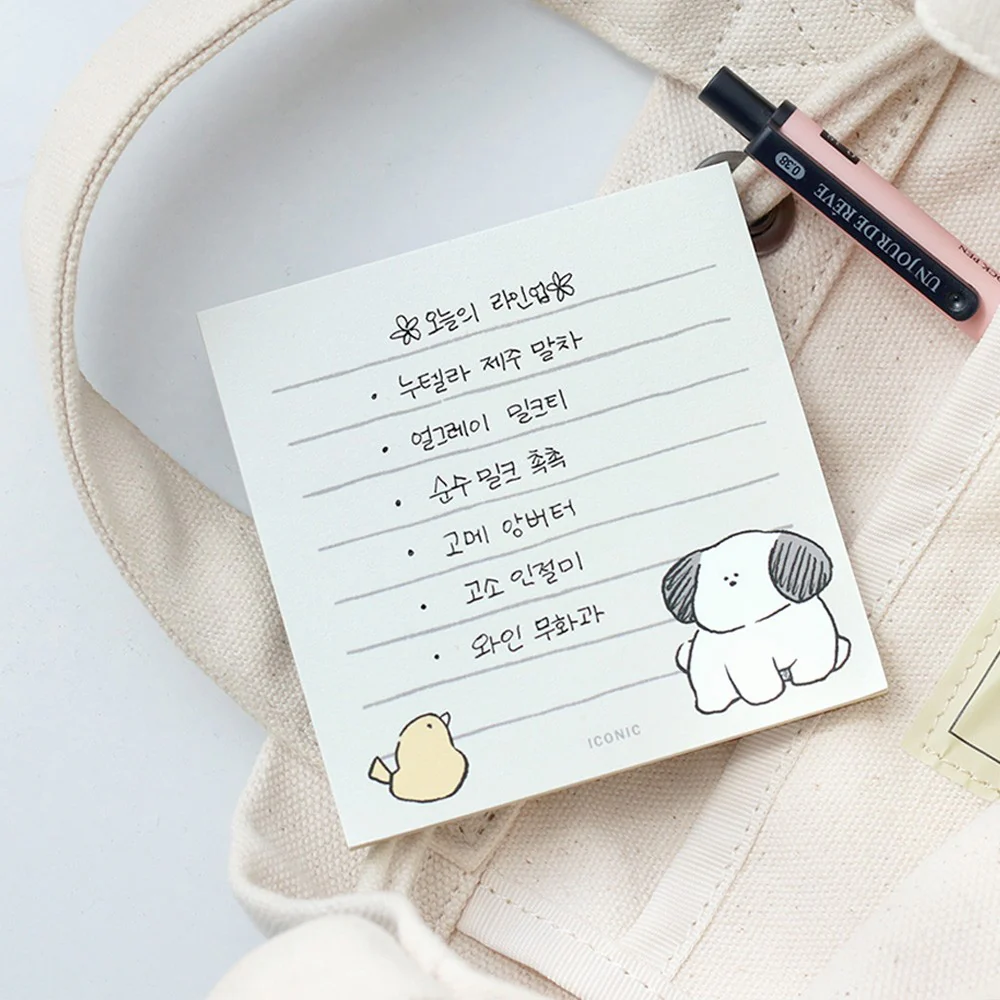 오늘의 라인업
• 누텔라 제주 말차
• 얼그레이 밀크티
• 순수 밀크 촉촉
• 고메 앙버터
• 고소 인절미
• 와인 무화과
ICONIC
0.38 UN JOUR DE RÊVE
CK PEN